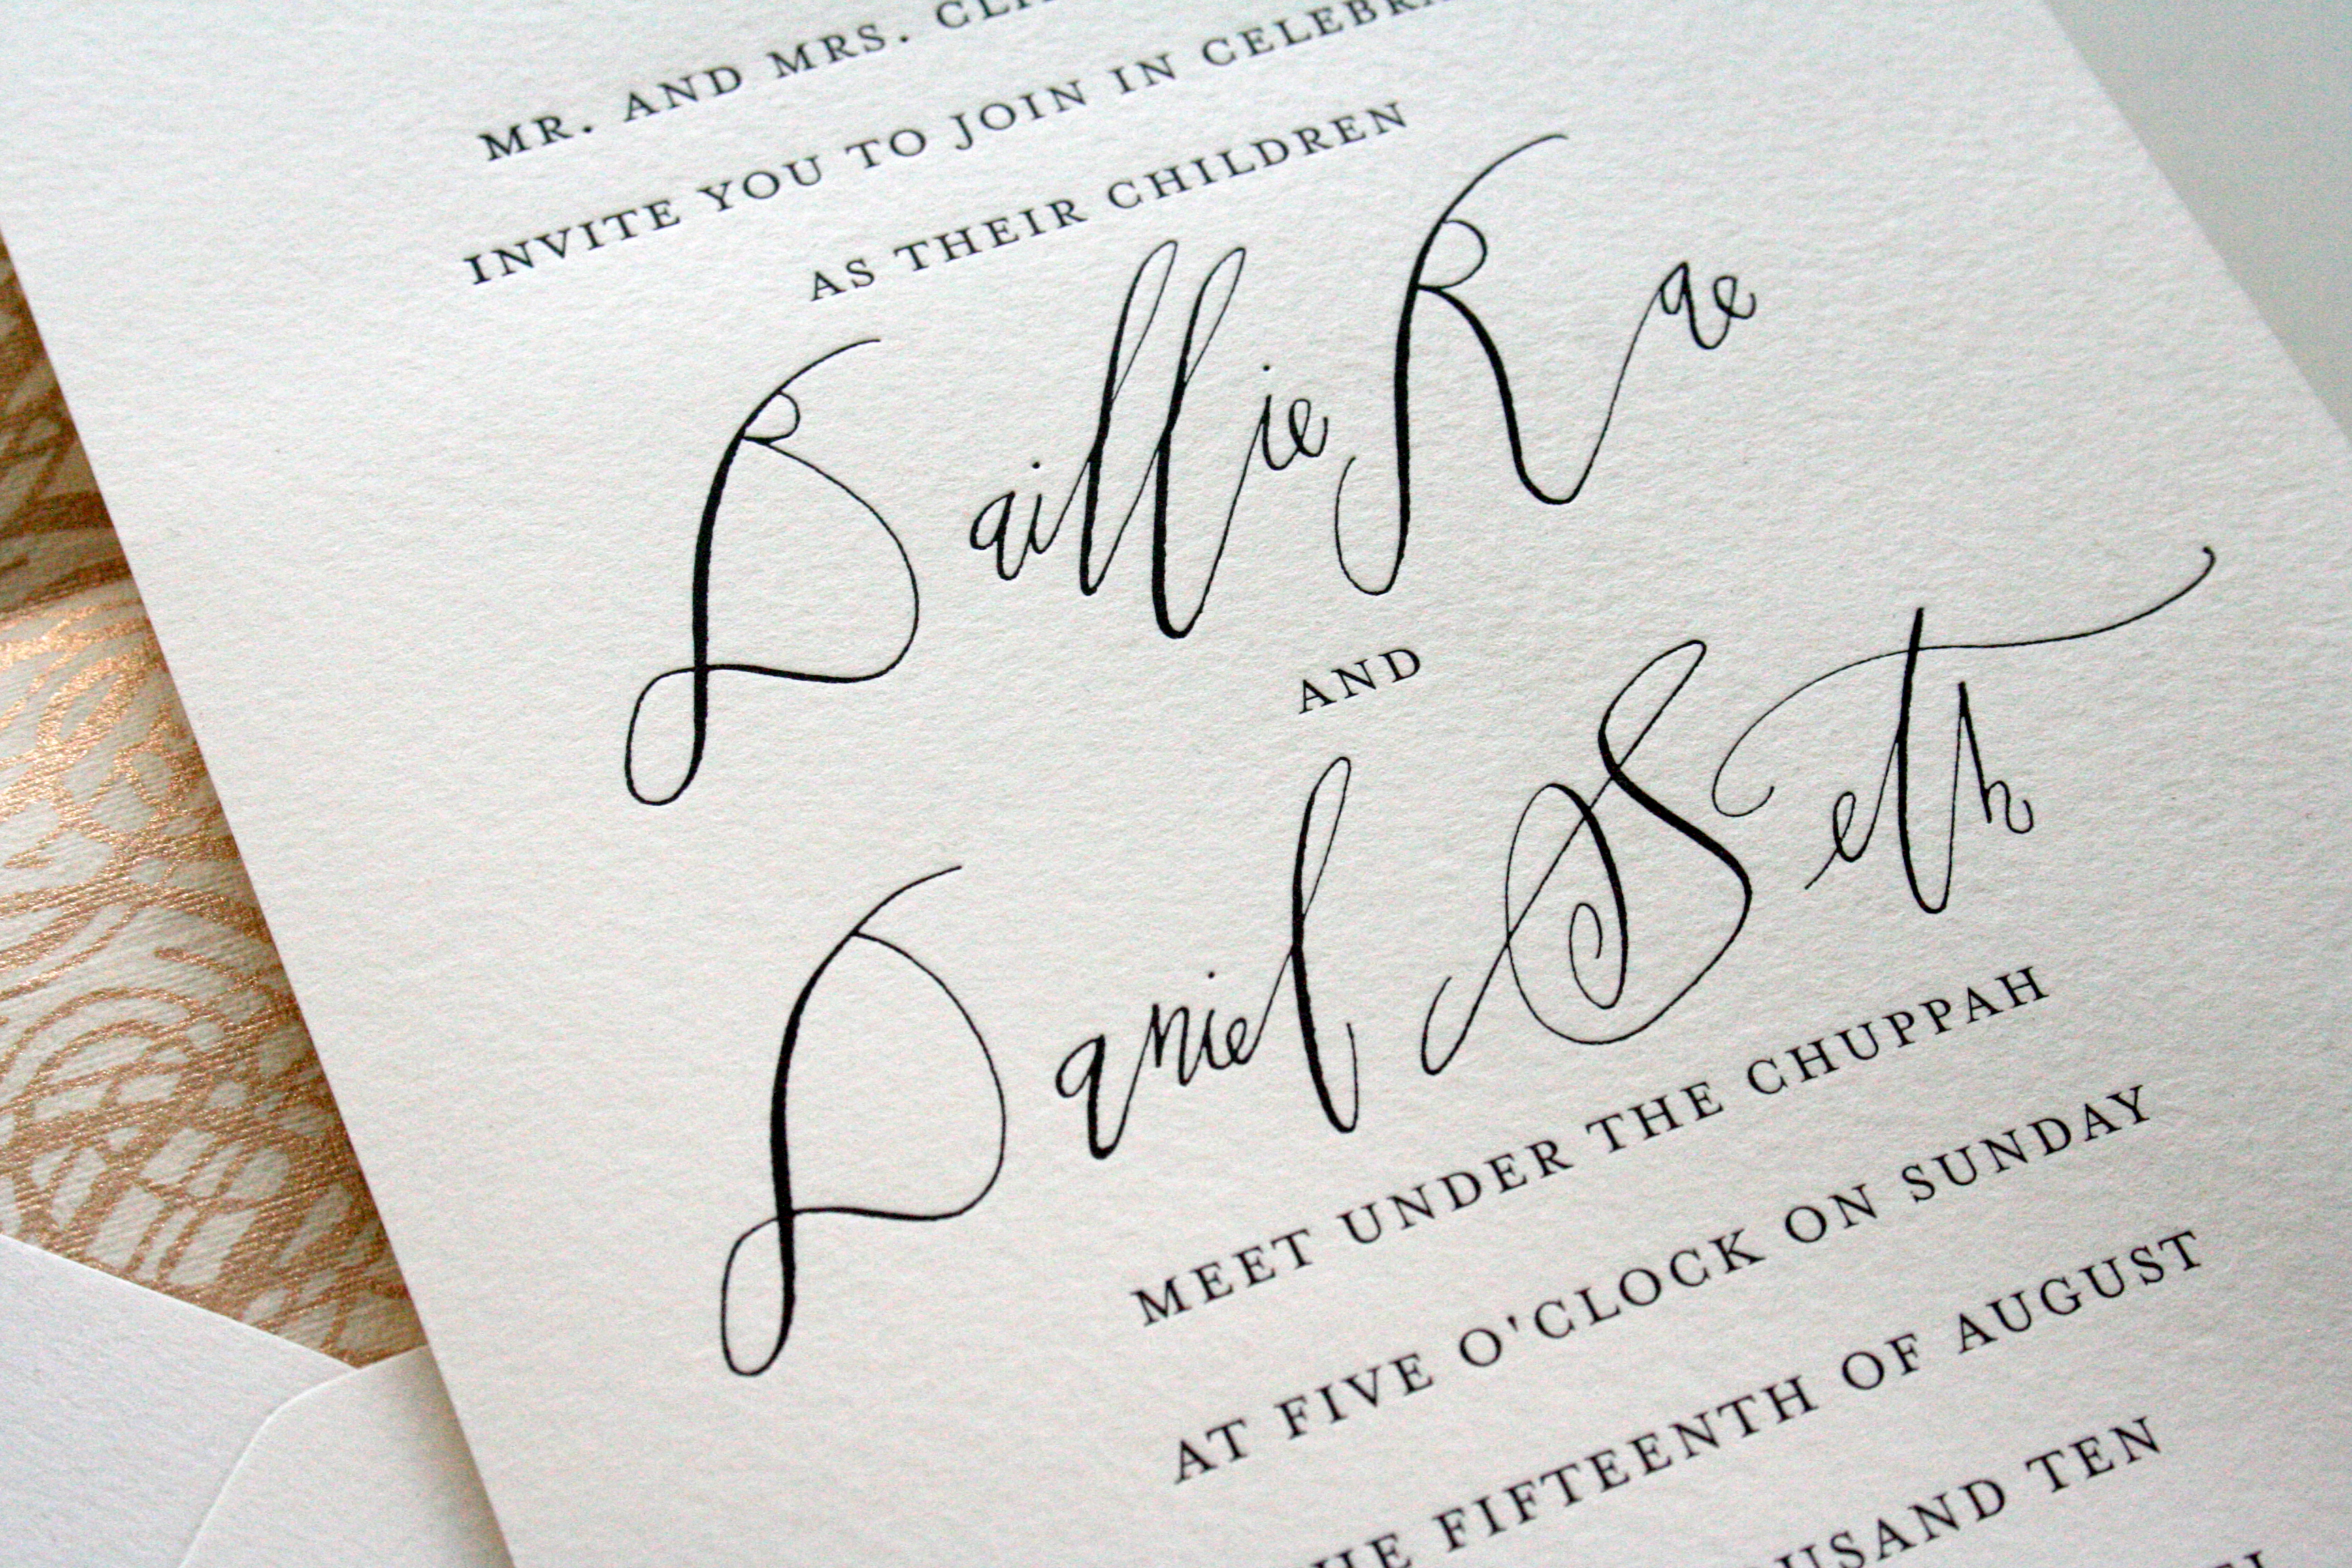 MR. AND MRS.
INVITE YOU TO JOIN IN
AS THEIR CHILDREN
Baillie Rae
AND
Daniel Seth
MEET UNDER THE CHUPPAH
AT FIVE O'CLOCK ON SUNDAY
FIFTEENTH OF AUGUST
TEN